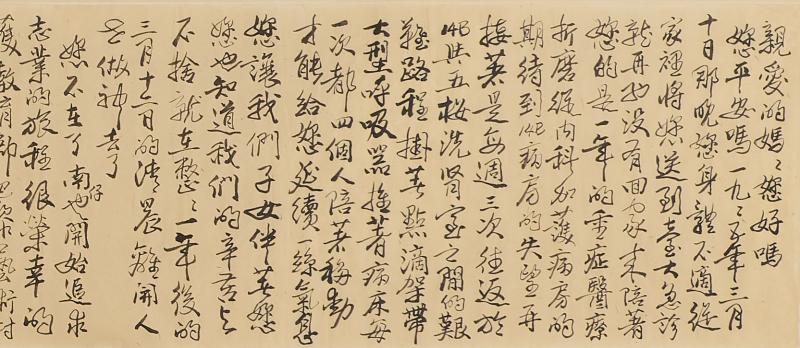 親愛的媽〻您好嗎
您平安嗎一九〻五年三月
十日那晚您身體不適從
家裡將您送到臺大急診
就再也没有回家來陪著
您的是一年的重症醫療
折磨從内科加護病房的
期待到14C病房的失望再
接著是每週三次往返於
14C與五樓洗腎室之間的艱
難路程掛著點滴架帶
大型呼吸器推著病床每
一次都四個人陪著移動
才能給您延續一絲氣息
您讓我們子女伴著您
您也知道我們的辛苦與
不捨就在整〻一年後的
三月十二日的清晨離開人
世做神去了
您不在了南仔也開始追求
志業的旅程很榮幸的
獲教育部巴黎藝術村